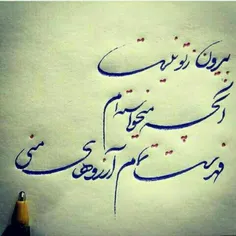 بیرون ز تو نیست
آنچه میخواسته‌ام
فهرست تمام آرزوهای منی